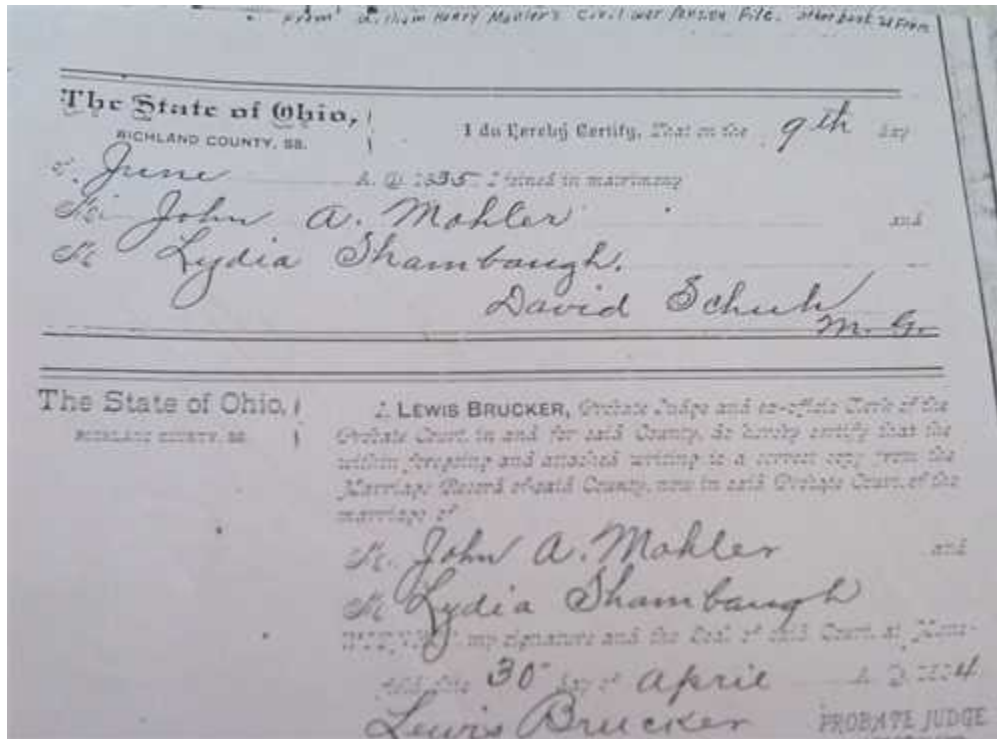 From William Henry Mohler's Civil War Pension File.
The State of Ohio,
RICHLAND COUNTY, SS.
I do Hereby Certify, That on the 9th day
of June A. D. 1835 I joined in matrimony
John A. Mohler and
Lydia Shambaugh.
David Schuh
M. G.
The State of Ohio,
RICHLAND COUNTY, SS.
I, LEWIS BRUCKER, Probate Judge and ex-officio Clerk of the
Probate Court, in and for said County, do hereby certify that the
within foregoing and attached writing is a correct copy from the
Marriage Record of said County, now in said Probate Court, of the
marriage of
M John A. Mohler and
M Lydia Shambaugh
my signature and the Seal of said Court, at Mans-
field this 30 day of April A. D. 4
Lewis Brucker PROBATE JUDGE